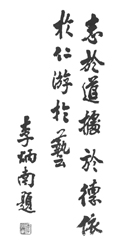 志於道據於德依
於仁游於藝
李炳南題